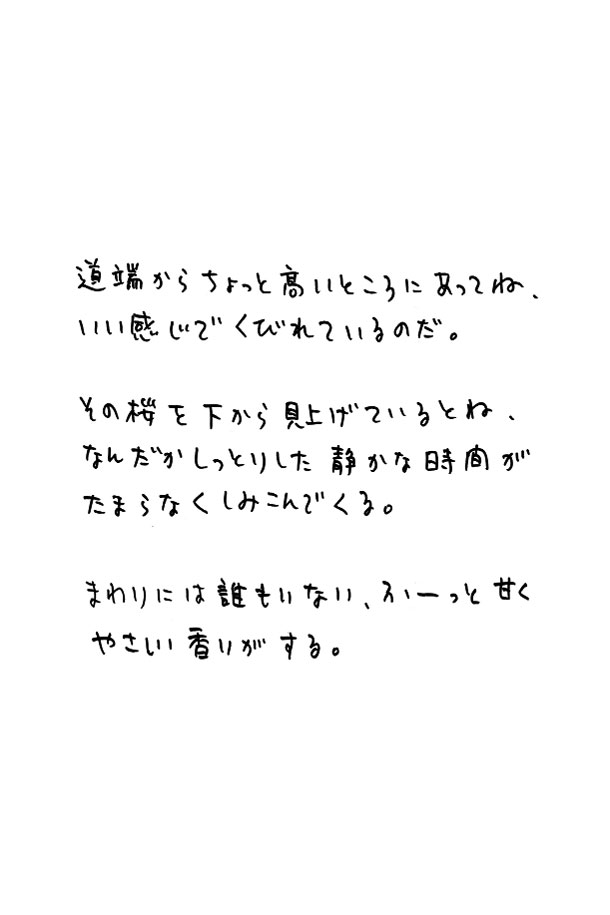 道端からちょっと高いところにあってね、
いい感じでくびれているのだ。
その桜を下から見上げているとね、
なんだかしっとりした静かな時間が
たまらなくしみこんでくる。
まわりには誰もいない、ふーっと甘く
やさしい香りがする。